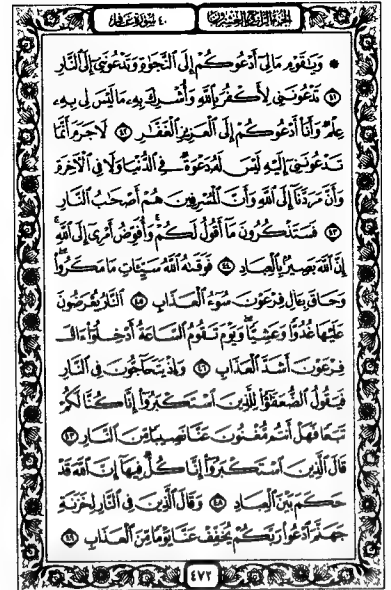 الجزء الرابع والعشرون
٤٠ سورة غافر
۞ وَيَٰقَوْمِ مَا لِىٓ أَدْعُوكُمْ إِلَى ٱلنَّجَوٰةِ وَتَدْعُونَنِىٓ إِلَى ٱلنَّارِ
﴿٤١﴾ تَدْعُونَنِى لِأَكْفُرَ بِٱللَّهِ وَأُشْرِكَ بِهِۦ مَا لَيْسَ لِى بِهِۦ
عِلْمٌ وَأَنَا۠ أَدْعُوكُمْ إِلَى ٱلْعَزِيزِ ٱلْغَفَّٰرِ ﴿٤٢﴾ لَا جَرَمَ أَنَّمَا
تَدْعُونَنِىٓ إِلَيْهِ لَيْسَ لَهُۥ دَعْوَةٌ فِى ٱلدُّنْيَا وَلَا فِى ٱلْءَاخِرَةِ
وَأَنَّ مَرَدَّنَآ إِلَى ٱللَّهِ وَأَنَّ ٱلْمُسْرِفِينَ هُمْ أَصْحَٰبُ ٱلنَّارِ
﴿٤٣﴾ فَسَتَذْكُرُونَ مَآ أَقُولُ لَكُمْ ۚ وَأُفَوِّضُ أَمْرِىٓ إِلَى ٱللَّهِ ۚ
إِنَّ ٱللَّهَ بَصِيرٌۢ بِٱلْعِبَادِ ﴿٤٤﴾ فَوَقَىٰهُ ٱللَّهُ سَيِّـَٔاتِ مَا مَكَرُوا۟ ۖ
وَحَاقَ بِـَٔالِ فِرْعَوْنَ سُوٓءُ ٱلْعَذَابِ ﴿٤٥﴾ ٱلنَّارُ يُعْرَضُونَ
عَلَيْهَا غُدُوًّا وَعَشِيًّا ۖ وَيَوْمَ تَقُومُ ٱلسَّاعَةُ أَدْخِلُوٓا۟ ءَالَ
فِرْعَوْنَ أَشَدَّ ٱلْعَذَابِ ﴿٤٦﴾ وَإِذْ يَتَحَآجُّونَ فِى ٱلنَّارِ
فَيَقُولُ ٱلضُّعَفَٰٓؤُا۟ لِلَّذِينَ ٱسْتَكْبَرُوٓا۟ إِنَّا كُنَّا لَكُمْ
تَبَعًا فَهَلْ أَنتُم مُّغْنُونَ عَنَّا نَصِيبًا مِّنَ ٱلنَّارِ ﴿٤٧﴾
قَالَ ٱلَّذِينَ ٱسْتَكْبَرُوٓا۟ إِنَّا كُلٌّ فِيهَآ إِنَّ ٱللَّهَ قَدْ
حَكَمَ بَيْنَ ٱلْعِبَادِ ﴿٤٨﴾ وَقَالَ ٱلَّذِينَ فِى ٱلنَّارِ لِخَزَنَةِ
جَهَنَّمَ ٱدْعُوا۟ رَبَّكُمْ يُخَفِّفْ عَنَّا يَوْمًا مِّنَ ٱلْعَذَابِ ﴿٤٩﴾
٤٧٢